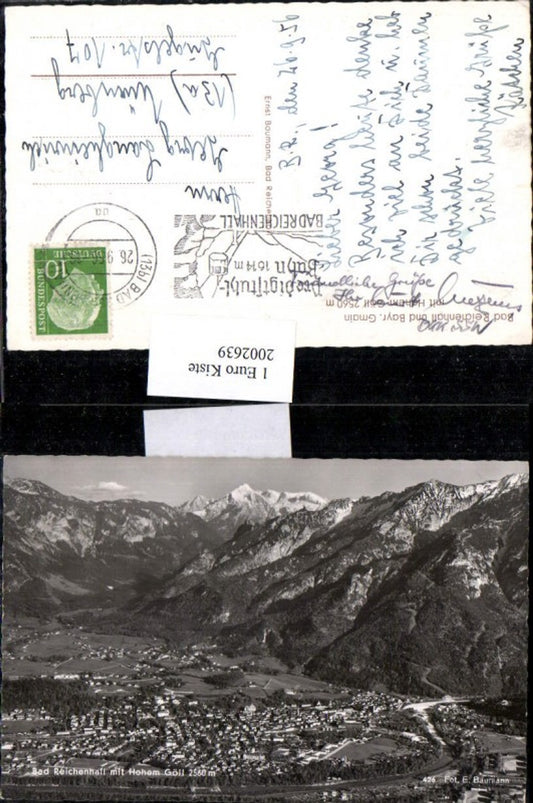 B.R., den 26.9.56
Lieber Georg!
Besonders heute denke
ich viel an Dich u. hab
Dir schon beide Daumen
gedrückt.
Viele herzliche Grüße
Herrn
Georg
(13a) Nürnberg
107
Ernst Baumann, Bad Reichen
Bad Reichenhall und Bayr. Gmain
mit Hohem Göll 2560 m
Predigtstuhl-
Bahn 1614 m
BAD REICHENHALL
(13b) BAD
26.9.
10
DEUTSCHE
BUNDESPOST
1 Euro Kiste
2002639
Bad Reichenhall mit Hohem Göll 2560 m
426 Fot. E. Baumann